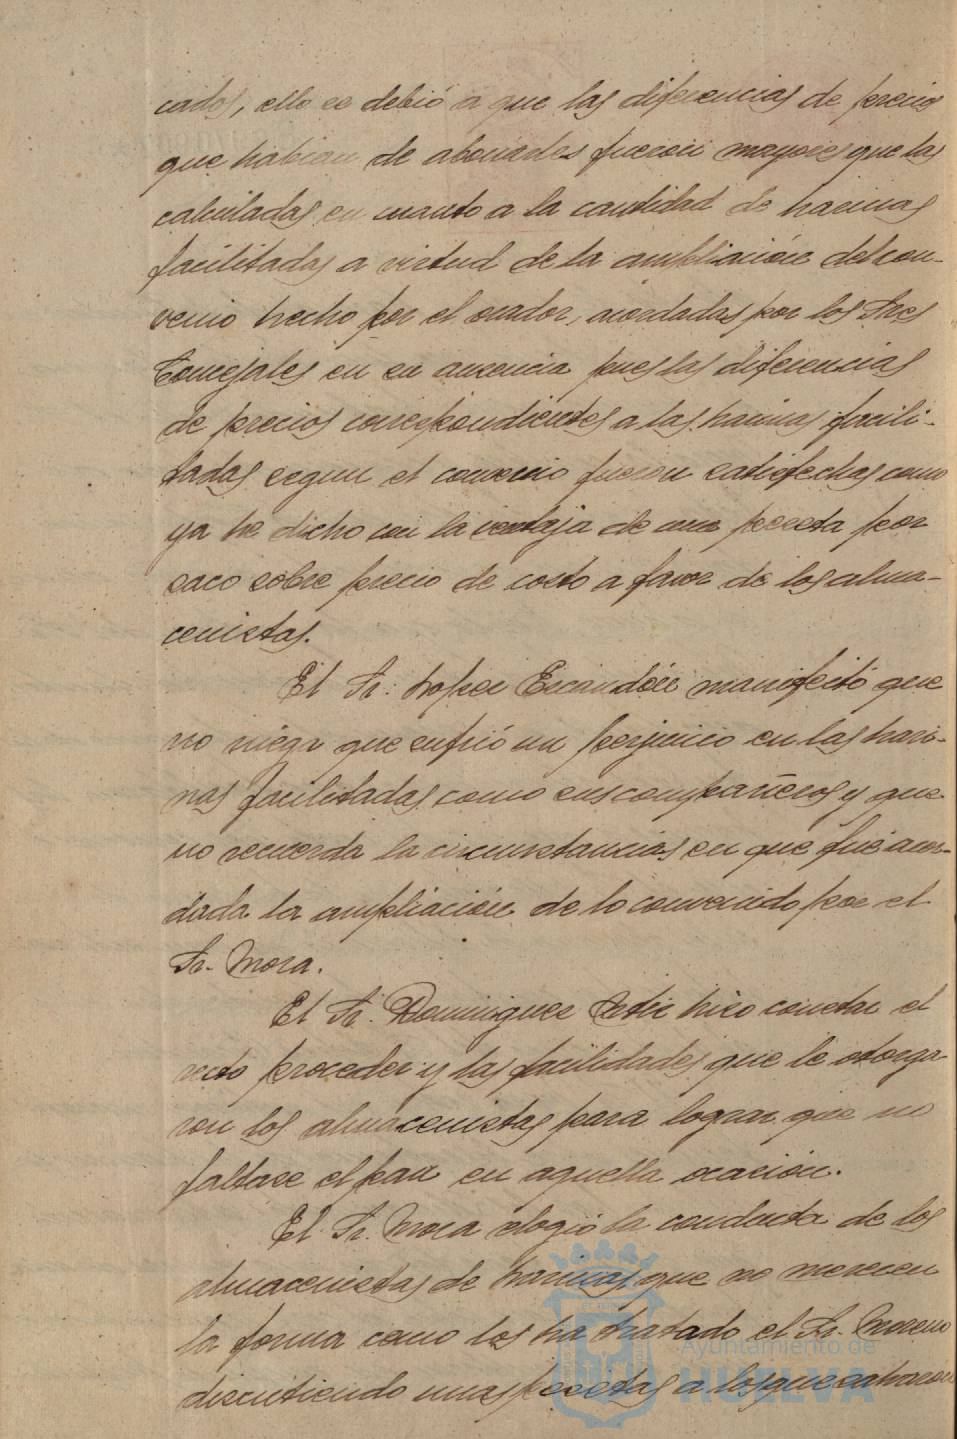 cados, ello se debió a que las diferencias de precios
que habian de abonarles fueron mayores que las
calculadas en cuanto a la cantidad de harinas
facilitadas a virtud de la ampliación del con-
venio hecho por el orador, acordadas por los Sres
Concejales en su ausencia pues las diferencias
de precios correspondientes a las harinas facili-
tadas segun el convenio fueron satisfechas como
ya he dicho con la ventaja de una peseta por
saco sobre precio de costo a favor de los alma-
cenistas.
El Sr. Lopez Escandón manifestó que
no niega que sufrió un perjuicio en las hari-
nas facilitadas como sus compañeros y que
no recuerda la circunstancias en que fué acor-
dada la ampliación de lo convenido por el
Sr. Mora.
El Sr. Dominguez hizo constar el
recto proceder y las facilidades que le otorga
ron los almacenistas para lograr que no
faltase el pan en aquella ocasión.
El Sr. Mora elogió la conducta de los
almacenistas de harinas que no merecen
la forma como los ha tratado el Sr. Moreno
discutiendo unas pesetas a los que salvaron
Ayuntamiento de
HUELVA